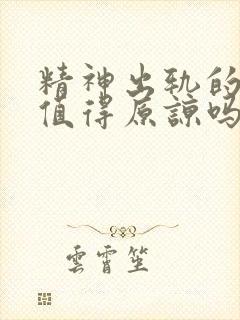 精神出轨的
值得原谅吗
雲霄笙